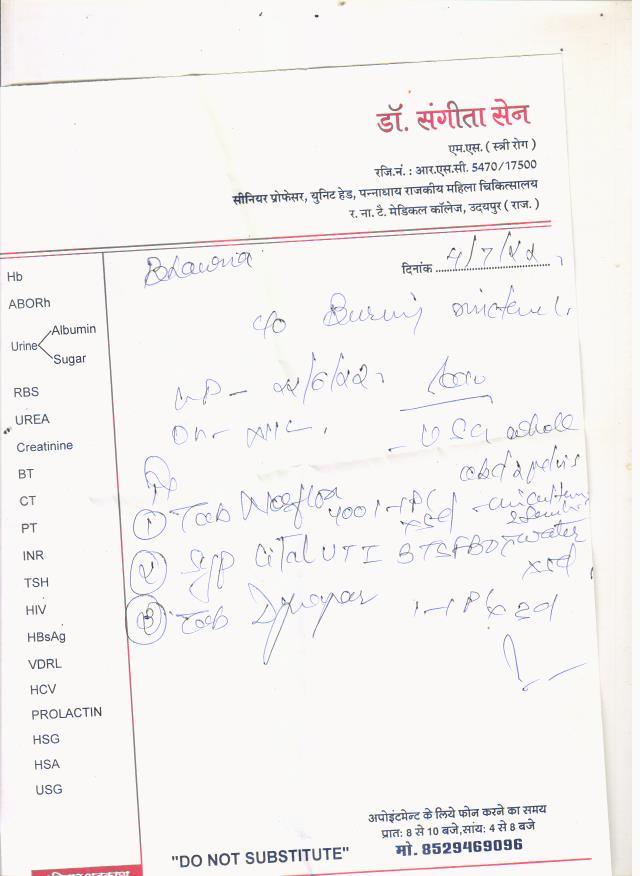 डॉ. संगीता सेन
एम.एस. ( स्त्री रोग )
रजि.नं. : आर.एस.सी. 5470/17500
सीनियर प्रोफेसर, युनिट हेड, पन्नाधाय राजकीय महिला चिकित्सालय
र. ना. टै. मेडिकल कॉलेज, उदयपुर ( राज. )
Bhawna
दिनांक 4/7/22
c/o Burning
LMP - 22/6/22
O/H - 
- USG whole
abd & pelvis
Rx
① Tab Norflox 400 1-1 PC x5d
- urine culture & sensi
② Syp Cital UTI 3TSF BD c water
x5d
③ Tab 1-1 P/C x 3d
Hb
ABORh
Urine Albumin
Sugar
RBS
UREA
Creatinine
BT
CT
PT
INR
TSH
HIV
HBsAg
VDRL
HCV
PROLACTIN
HSG
HSA
USG
अपोइंटमेन्ट के लिये फोन करने का समय
प्रात: 8 से 10 बजे,सांय: 4 से 8 बजे
"DO NOT SUBSTITUTE" मो. 8529469096